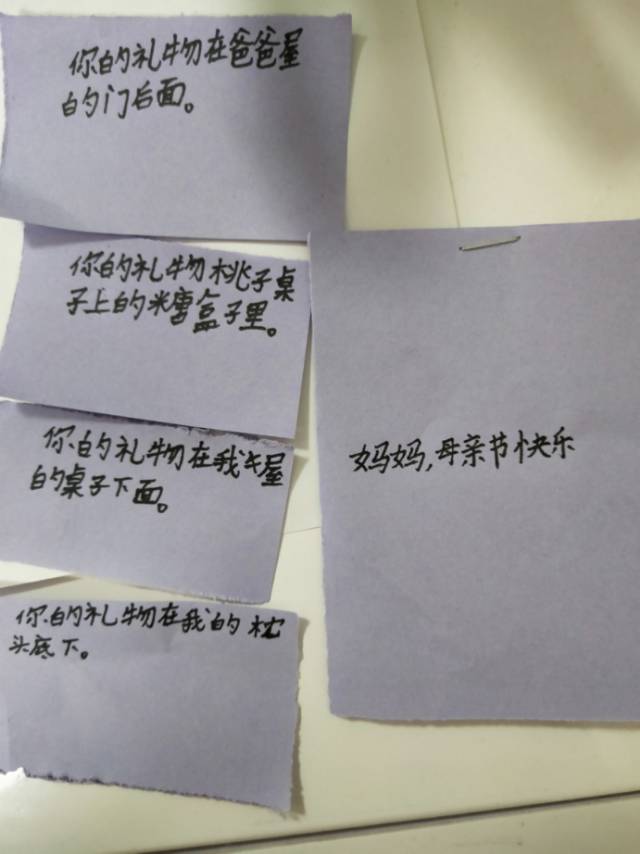 你的礼物在爸爸屋
的门后面。
你的礼物桃子桌
子上的糖盒子里。
你的礼物在我屋
的桌子下面。
你的礼物在我的枕
头底下。
妈妈,母亲节快乐